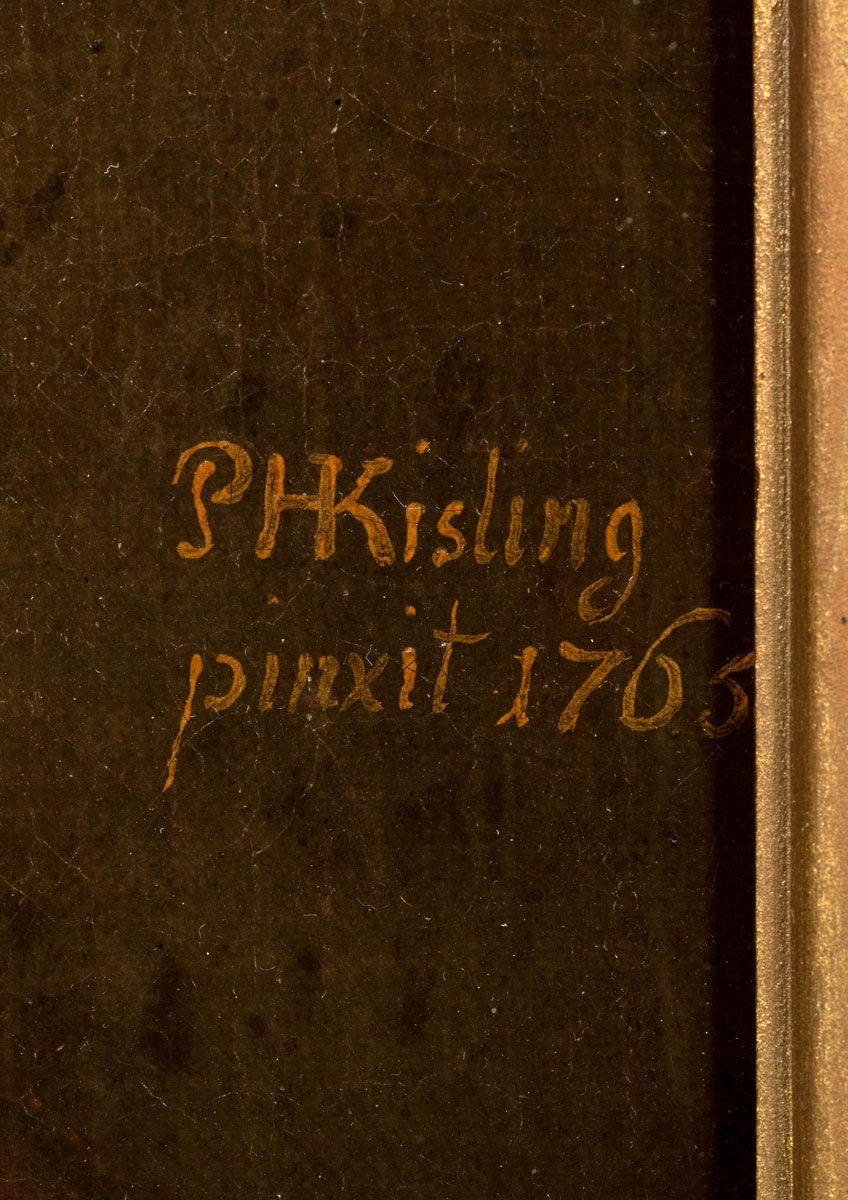 PHKisling
pinxit 1765